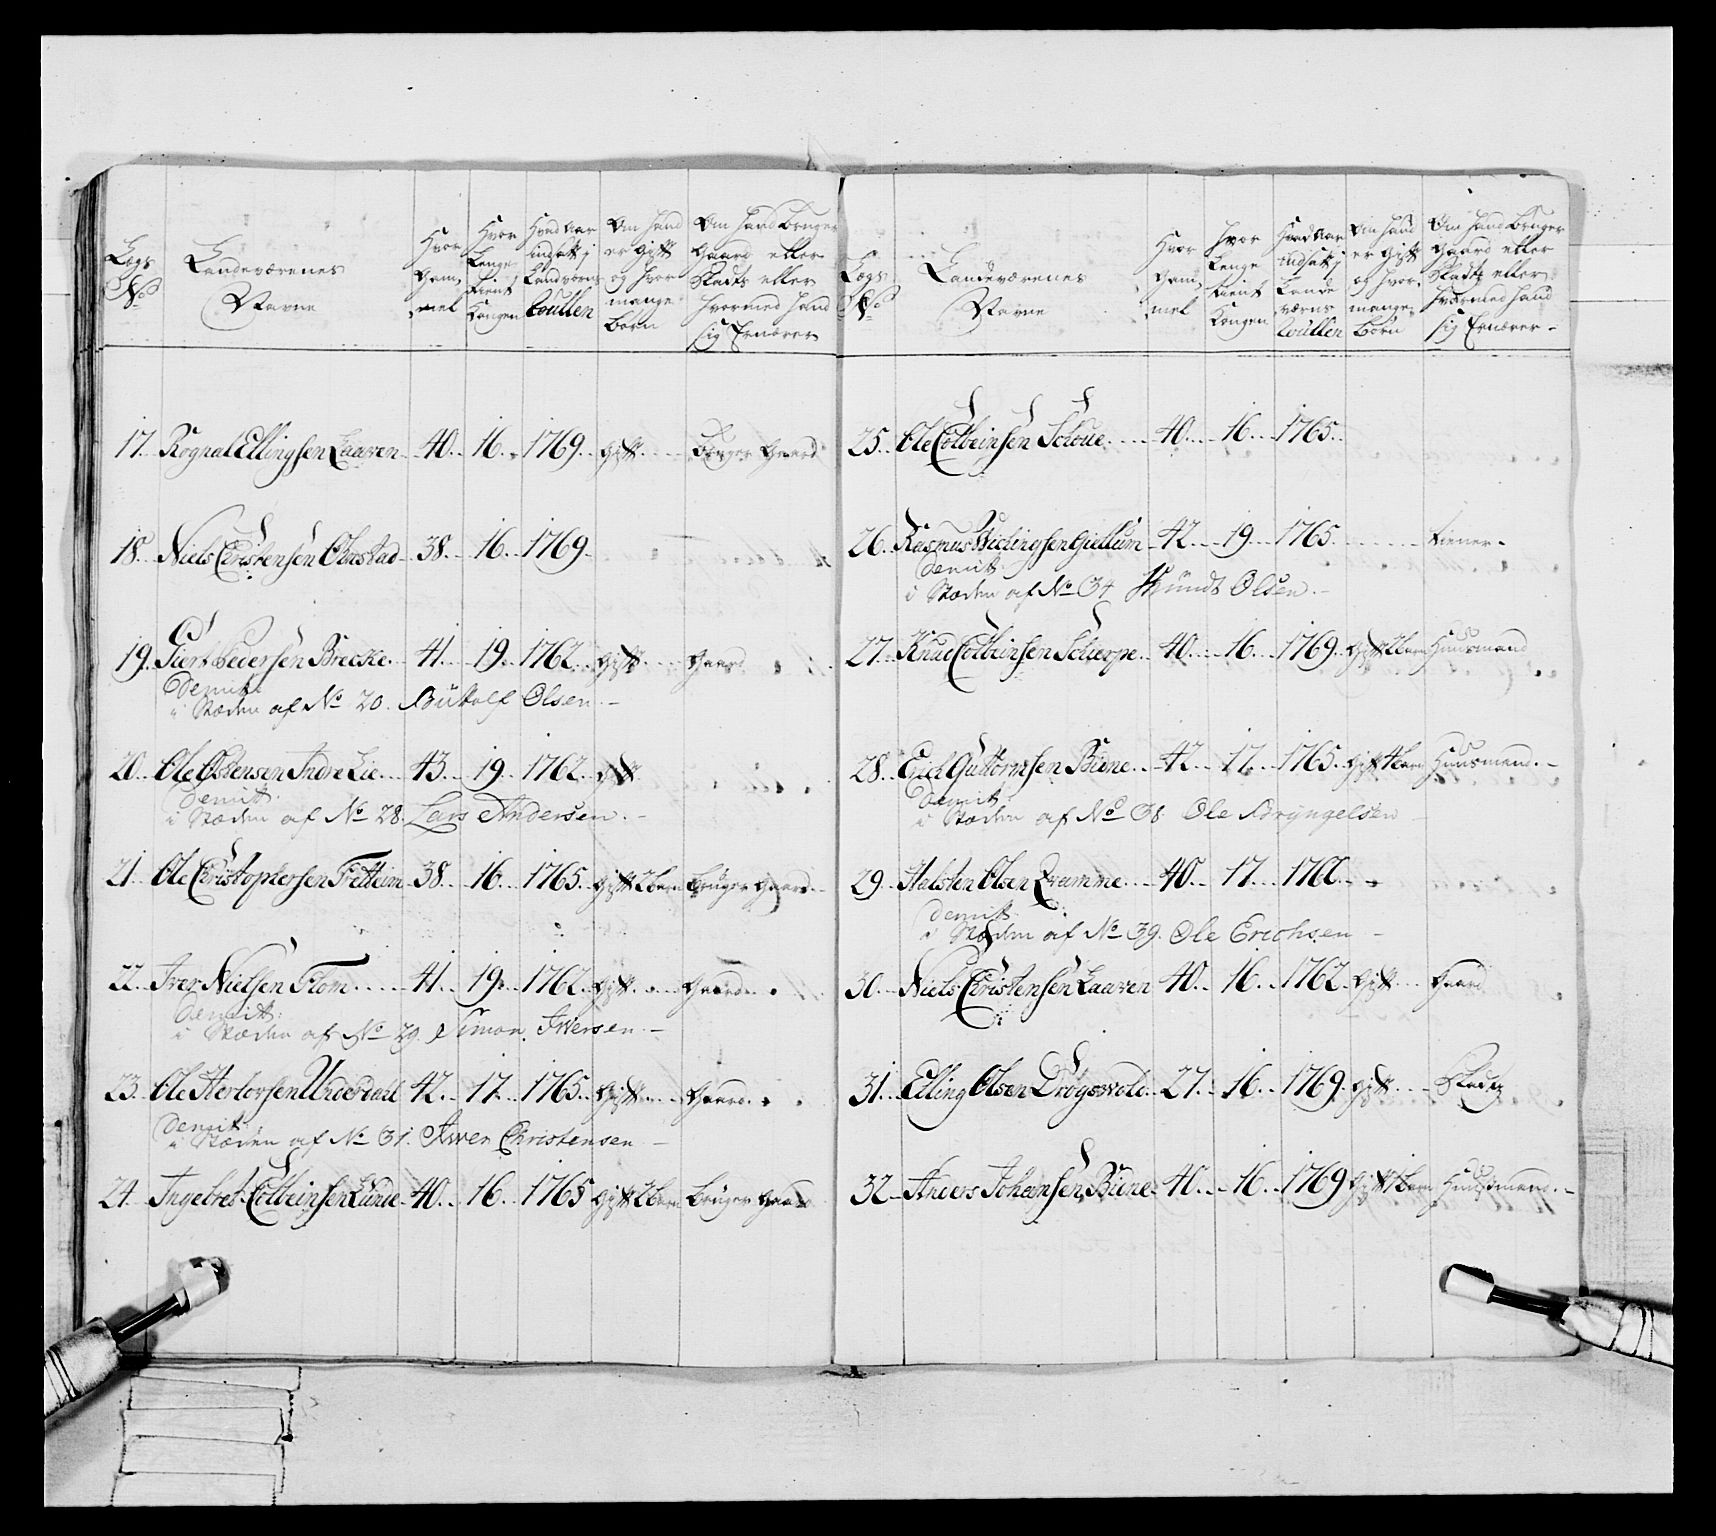 Lægs No
Landeværenes Navne
Hvor Gam, mel
Hvor Lenge tient Kongen
Hvad Aar indsatt j Landværns Roullen
Om hand er gift og hvor mange Børn
Om hand Bruger Gaard eller Pladts eller hvormed hand sig Ernærer
17. Rognal Ellingsen Laaven 40. 16. 1769. gift. Bruger Gaard
18. Niels Christensen Ohnstad 38. 16. 1769.
19. Siert Pedersen Brecke 41. 19. 1762. gift. Gaard
demit:
i Stæden af No 20. Butolf Olsen. –
20. Ole Ostensen Indre Lie 43. 19. 1762. gift
demit:
i Stæden af No 28. Lars Andersen. –
21. Ole Christophersen Fretteim 38. 16. 1765. gift 2 børn Bruger Gaard
22. Iver Nielsen Flom 41. 19. 1762. gift. Gaard.
demitt:
i Stæden af No 29. Simon Iversen. –
23. Ole Herlovsen Underdahl 42. 17. 1765. gift. Gaard.
demit:
i Stæden af No 31. Iwer Christensen –
24. Ingebret Colbeinsen Lunde 40. 16. 1765 gift 2 børn Bruger Gaard
Lægs No
Landeværenes Navne
Hvor Gam, mel
Hvor Lenge tient Kongen
Hvad Aar indsatt j Lande værns Roullen
Om hand er gift og hvor mange Børn
Om hand Bruger Gaard eller Pladts eller hvormed hand sig Ernærer –
25. Ole Colbeinsen Schoue 40. 16. 1765.
26. Rasmus Giellum 42. 19. 1765. tiener.
demit:
i Stæden af No 34 Olsen. –
27. Knud Colbeinsen Schierpe 40. 16. 1769. gift 2 børn Huusmand
28. Erich Guttormsen Biene 42. 17. 1765. gift 4 børn Huusmand. –
demit:
i Stæden af No 38. Ole Bryngelsen –
29. Halsten Olsen Qvamme 40. 17. 1766.
demit:
i Stæden af No 39. Ole Erichsen –
30. Niels Christensen Laaven 40. 16. 1762. gift. Gaard
31. Elling Olsen Drøgsvold 27. 16. 1769. gift. Pladtz
32. Anders Johansen Biene 40. 16. 1769 gift 1 børn Huusmand. –